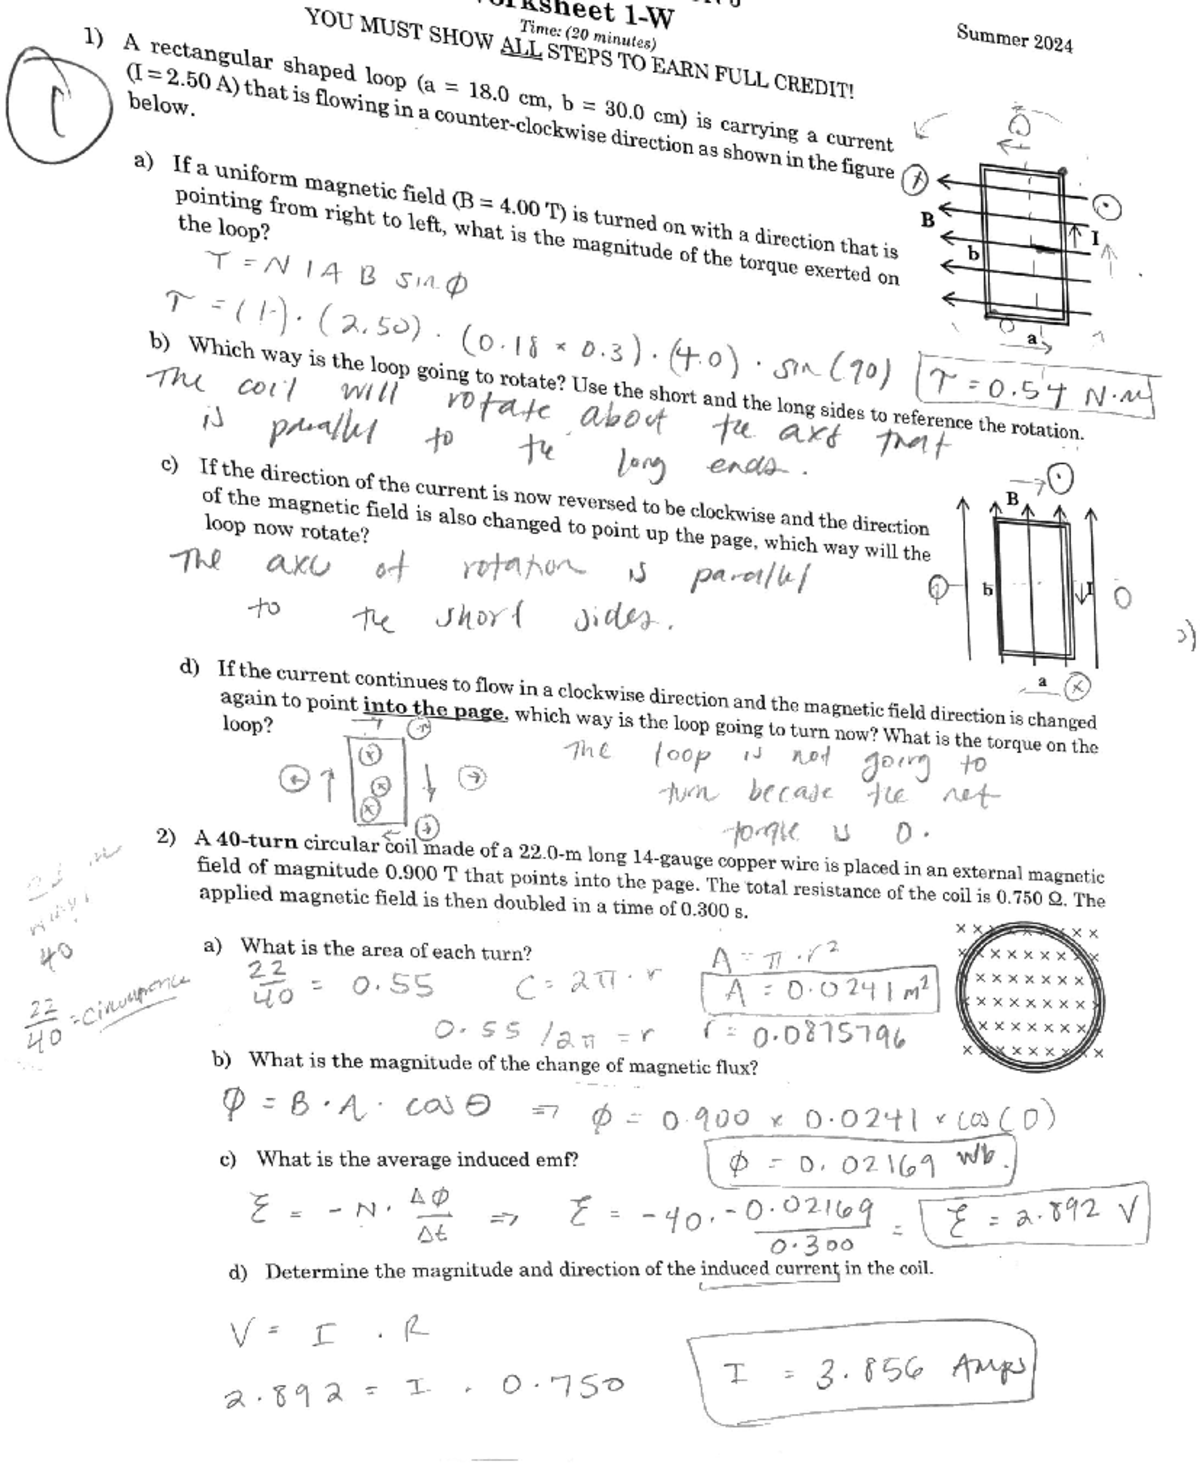 Worksheet 1-W
Summer 2024
Time: (20 minutes)
YOU MUST SHOW ALL STEPS TO EARN FULL CREDIT!
1) A rectangular shaped loop (a = 18.0 cm, b = 30.0 cm) is carrying a current
(I = 2.50 A) that is flowing in a counter-clockwise direction as shown in the figure
below.
a) If a uniform magnetic field (B = 4.00 T) is turned on with a direction that is
pointing from right to left, what is the magnitude of the torque exerted on
the loop?
B
b
I
a
τ = N I A B sin φ
τ = (1) · (2.50) · (0.18 × 0.3) · (4.0) · sin (90)
τ = 0.54 N·m
b) Which way is the loop going to rotate? Use the short and the long sides to reference the rotation.
The coil will rotate about the axs that
is parallel to the long ends.
c) If the direction of the current is now reversed to be clockwise and the direction
of the magnetic field is also changed to point up the page, which way will the
loop now rotate?
B
b
I
a
The axis of rotation is parallel
to the short sides.
d) If the current continues to flow in a clockwise direction and the magnetic field direction is changed
again to point into the page, which way is the loop going to turn now? What is the torque on the
loop?
The loop is not going to
turn becase the net
torque is 0.
2) A 40-turn circular coil made of a 22.0-m long 14-gauge copper wire is placed in an external magnetic
field of magnitude 0.900 T that points into the page. The total resistance of the coil is 0.750 Ω. The
applied magnetic field is then doubled in a time of 0.300 s.
40
22/40 = circumference
a) What is the area of each turn?
22/40 = 0.55
C = 2π · r
A = π · r²
A = 0.0241 m²
0.55 /2π = r
r = 0.0875796
b) What is the magnitude of the change of magnetic flux?
φ = B · A · cos θ ⇒ φ = 0.900 × 0.0241 × cos (0)
φ = 0.02169 Wb.
c) What is the average induced emf?
ℰ = - N · Δφ/Δt ⇒ ℰ = -40 · -0.02169/0.300 = ℰ = 2.892 V
d) Determine the magnitude and direction of the induced current in the coil.
V = I · R
2.892 = I · 0.750
I = 3.856 Amps